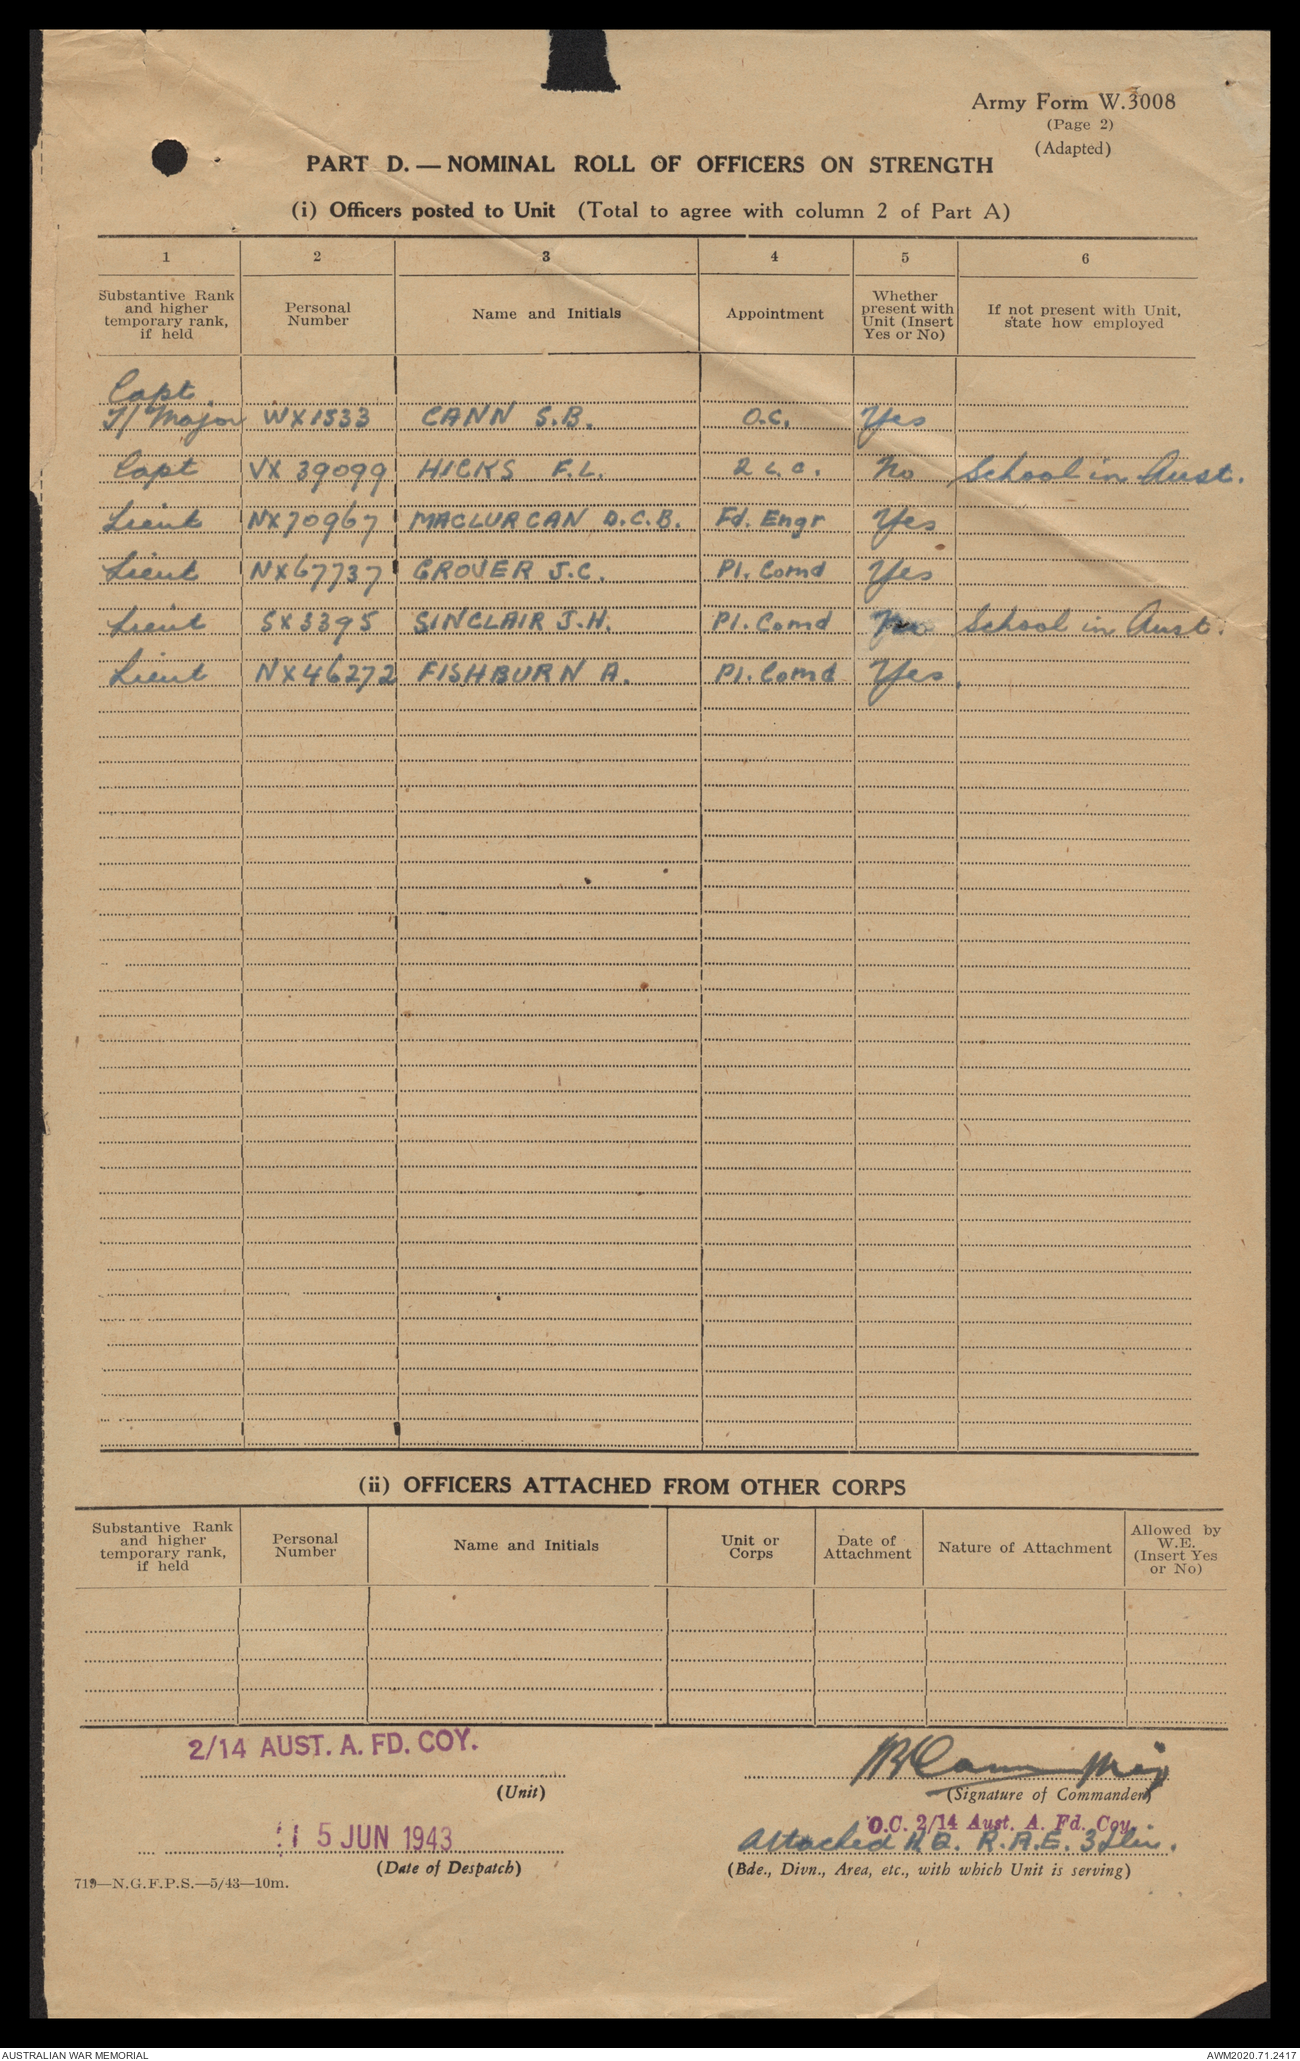 Army Form W.3008
(Page 2)
(Adapted)
PART D. — NOMINAL ROLL OF OFFICERS ON STRENGTH
(i) Officers posted to Unit (Total to agree with column 2 of Part A)
1 2 3 4 5 6
Substantive Rank and higher temporary rank, if held
Personal Number
Name and Initials
Appointment
Whether present with Unit (Insert Yes or No)
If not present with Unit, state how employed
Capt.
T/Major WX1533 CANN S.B. O.C. Yes
Capt VX 39099 HICKS F.L. 2 i.c. No School in Aust.
Lieut NX70967 MACLURCAN D.C.B. Fd. Engr Yes
Lieut NX67737 GROVER J.C. Pl. Comd Yes
Lieut SX3395 SINCLAIR J.H. Pl. Comd No School in Aust.
Lieut NX46272 FISHBURN A. Pl. Comd Yes.
(ii) OFFICERS ATTACHED FROM OTHER CORPS
Substantive Rank and higher temporary rank, if held
Personal Number
Name and Initials
Unit or Corps
Date of Attachment
Nature of Attachment
Allowed by W.E. (Insert Yes or No)
2/14 AUST. A. FD. COY.
(Unit)
Cann Maj
(Signature of Commander)
O.C. 2/14 Aust. A. Fd. Coy.
15 JUN 1943
Attached H.Q. R.A.E. 3 Div.
(Date of Despatch)
(Bde., Divn., Area, etc., with which Unit is serving)
719—N.G.F.P.S.—5/43—10m.
AUSTRALIAN WAR MEMORIAL
AWM2020.71.2417